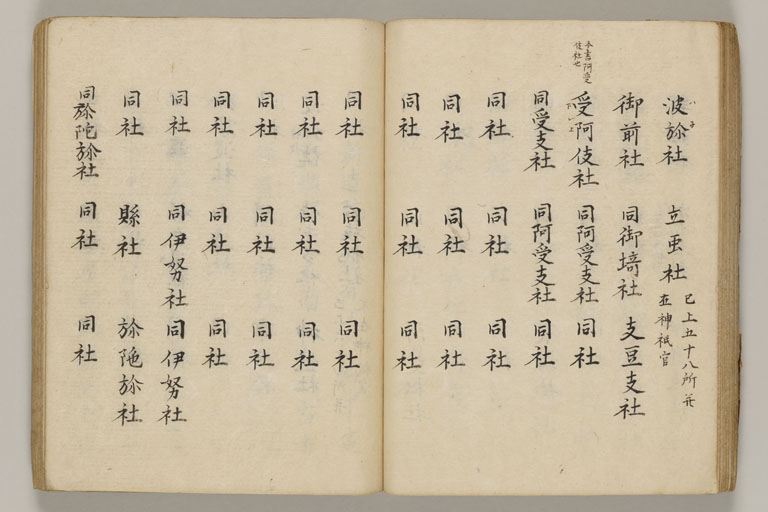 波旀社　立虫社　已上五十八所並
在神祇官
御前社　同御埼社　支豆支社
本書阿受
伎社也
受阿伎社　同阿受支社　同社
同受支社　同阿受支社　同社
同社　同社　同社
同社　同社　同社
同社　同社　同社
同社　同社　同社
同社　同社　同社
同社　同社　同社
同社　同社　同社
同社　同伊努社　同伊努社
同社　縣社　旀陁旀社
同旀陁旀社　同社　同社